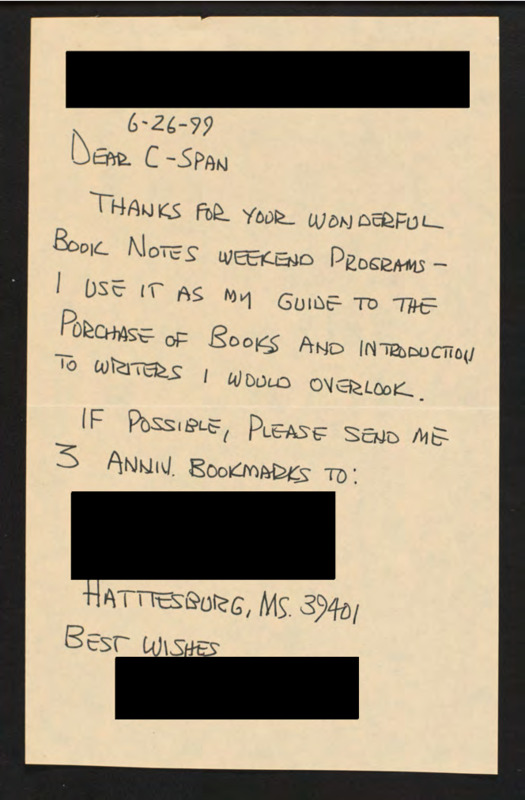 6-26-99
DEAR C-SPAN
THANKS FOR YOUR WONDERFUL
BOOK NOTES WEEKEND PROGRAMS -
I USE IT AS MY GUIDE TO THE
PURCHASE OF BOOKS AND INTRODUCTION
TO WRITERS I WOULD OVERLOOK.
IF POSSIBLE, PLEASE SEND ME
3 ANNIV. BOOKMARKS TO:
HATTIESBURG, MS. 39401
BEST WISHES